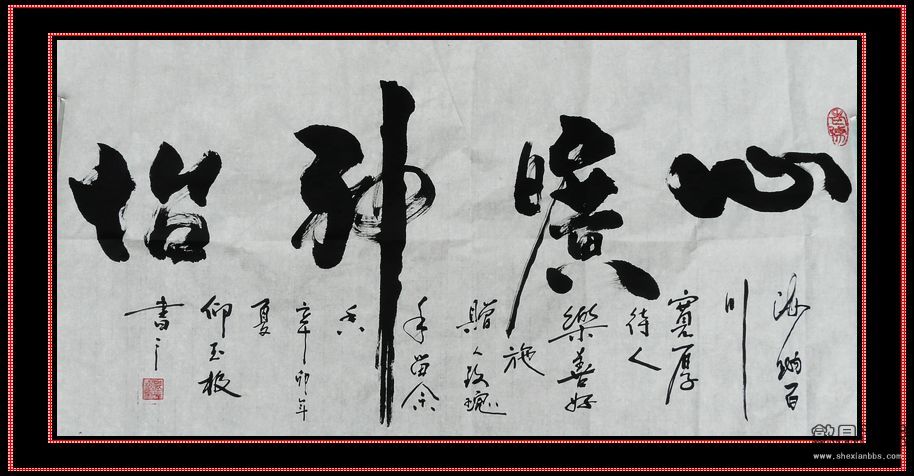 心曠神怡
海納百
川
寬厚
待人
樂善好
施
贈人玫瑰
手留余
香
辛卯年
夏
仰玉板
書之
www.shexianbbs.com